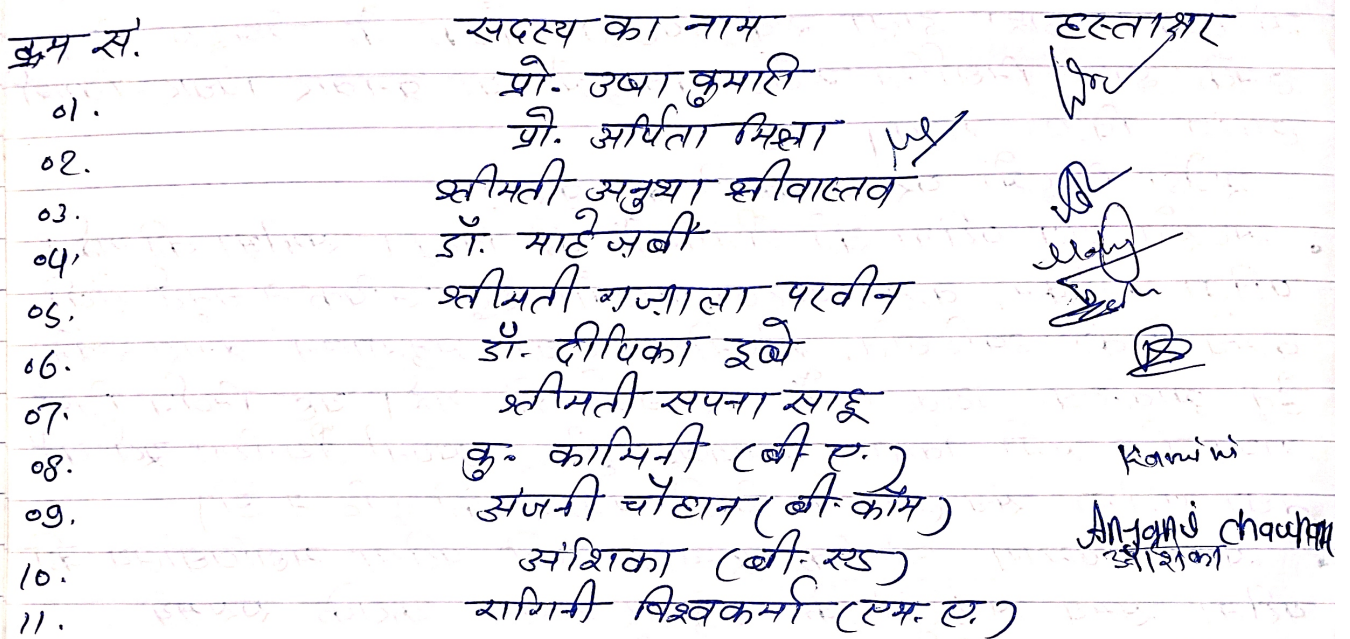 क्रम सं. सदस्य का नाम हस्ताक्षर
01. प्रो. उषा कुमारी
02. प्रो. अर्पिता मिश्रा
03. श्रीमती अनुभा श्रीवास्तव
04. डॉ. माहे ज़बीं
05. श्रीमती ग़ज़ाला परवीन
06. डॉ. दीपिका दुबे
07. श्रीमती सपना साहू
08. कु. कामिनी (बी. ए.) Kamini
09. अंजनी चौहान (बी. कॉम) Anjani chauhan
10. अंशिका (बी. एड) अंशिका
11. रागिनी विश्वकर्मा (एम. ए.)